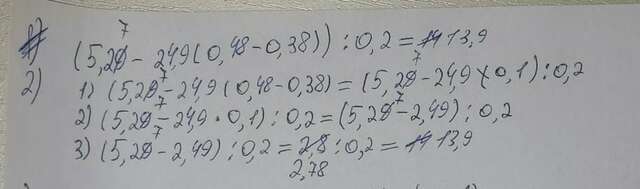 2) (5,27 - 24,9 (0,48 - 0,38)) : 0,2 = 13,9
1) (5,27 - 24,9 (0,48 - 0,38) = (5,27 - 24,9 × 0,1) : 0,2
2) (5,27 - 24,9 · 0,1) : 0,2 = (5,27 - 2,49) : 0,2
3) (5,27 - 2,49) : 0,2 = 2,8 : 0,2 = 13,9
2,78